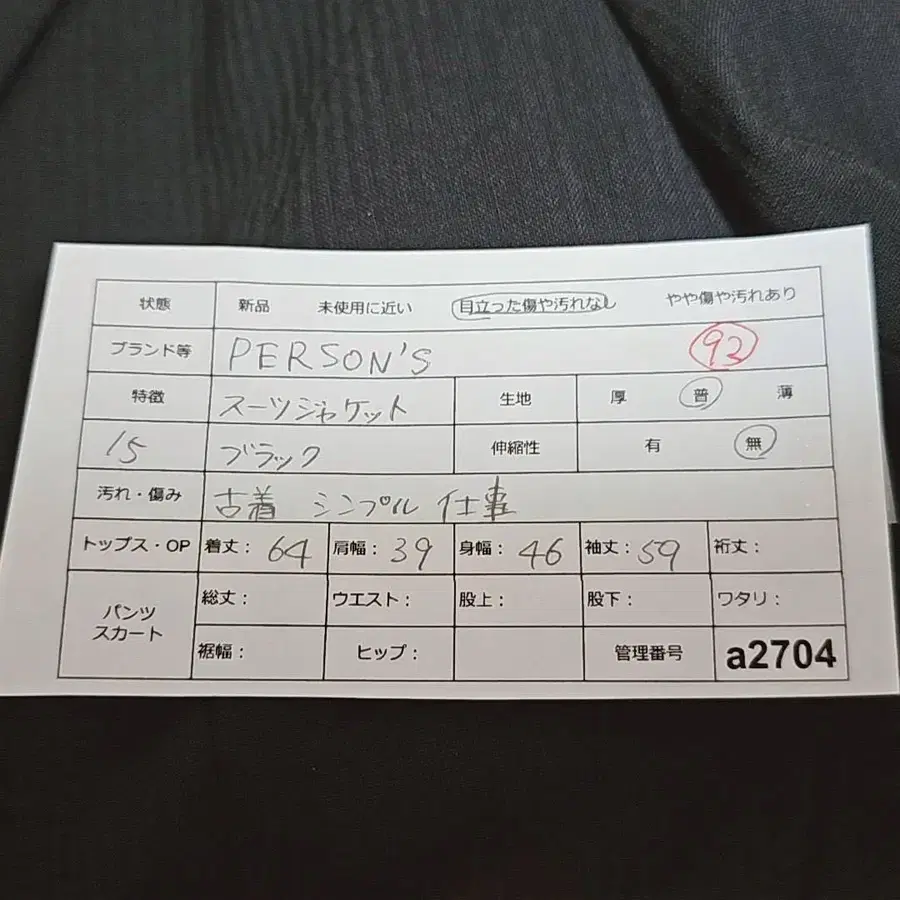 状態 新品 未使用に近い 目立った傷や汚れなし やや傷や汚れあり
ブランド等 PERSON'S 92
特徴 スーツジャケット 生地 厚 普 薄
15 ブラック 伸縮性 有 無
汚れ・傷み 古着 シンプル 仕事
トップス・OP 着丈: 64 肩幅: 39 身幅: 46 袖丈: 59 裄丈:
パンツ スカート 総丈: ウエスト: 股上: 股下: ワタリ:
裾幅: ヒップ: 管理番号 a2704